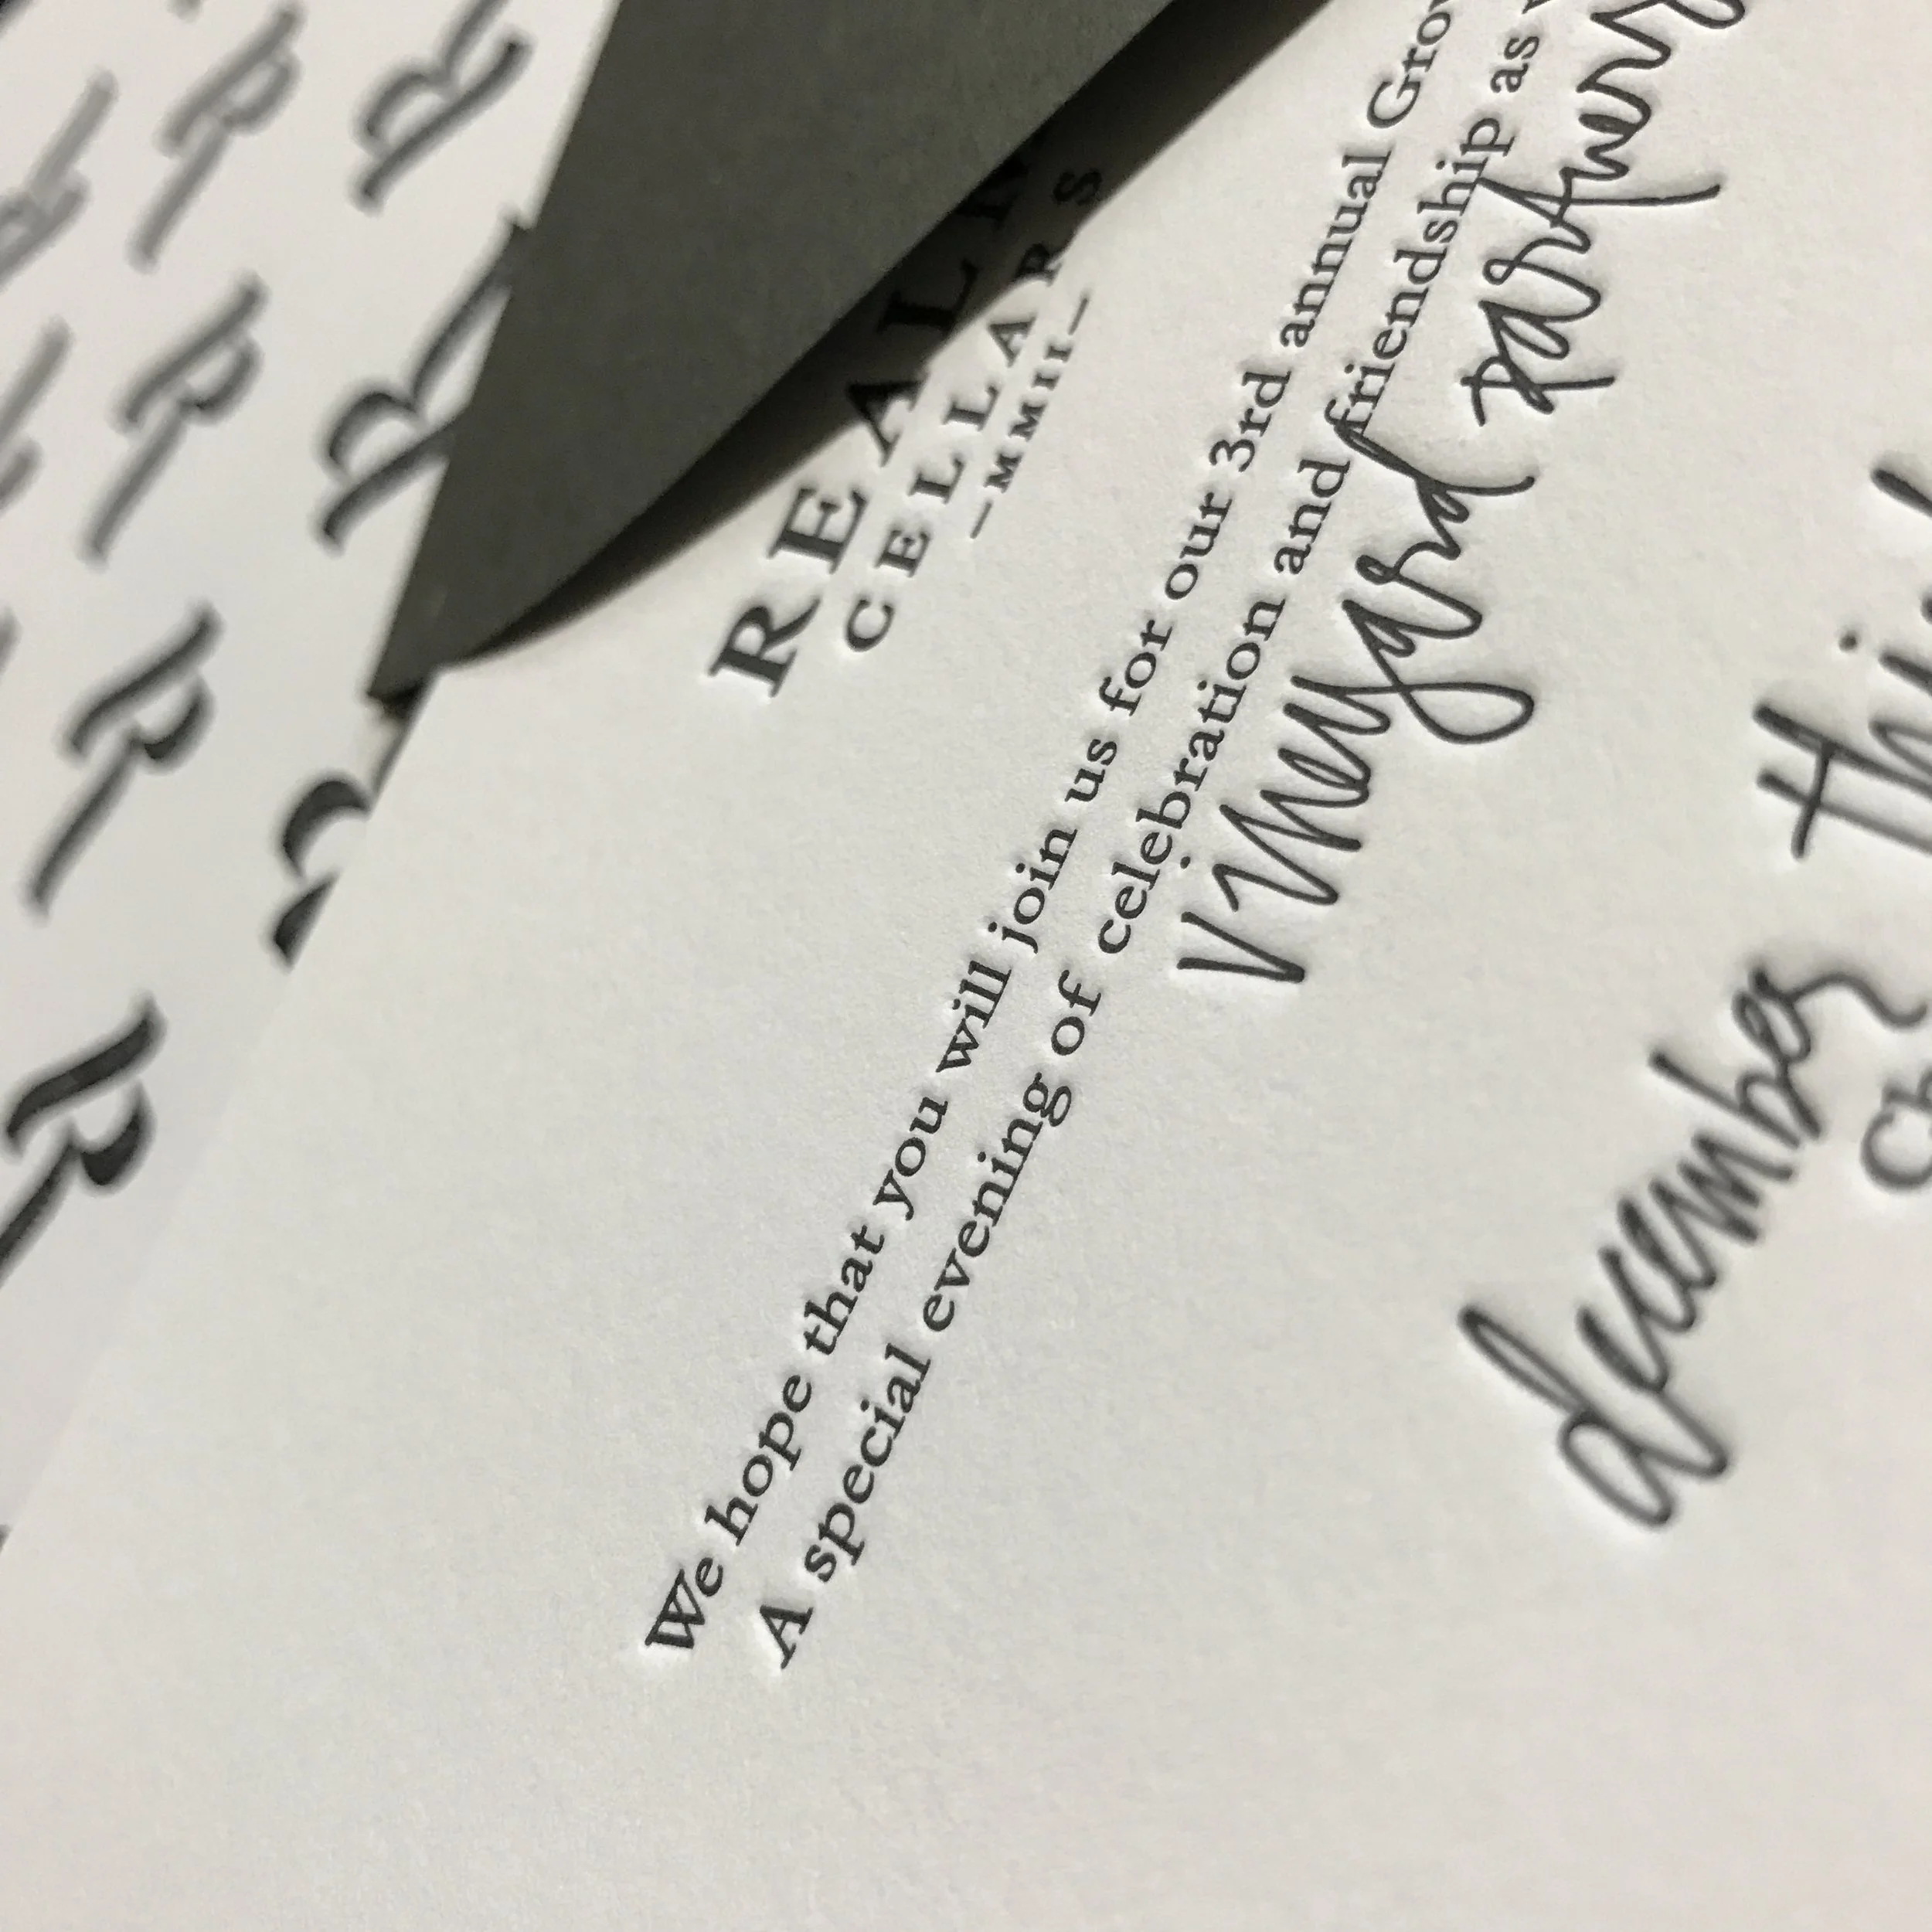 REALM
CELLARS
—MMII—
We hope that you will join us for our 3rd annual
A special evening of celebration and friendship as
vineyard partners
december